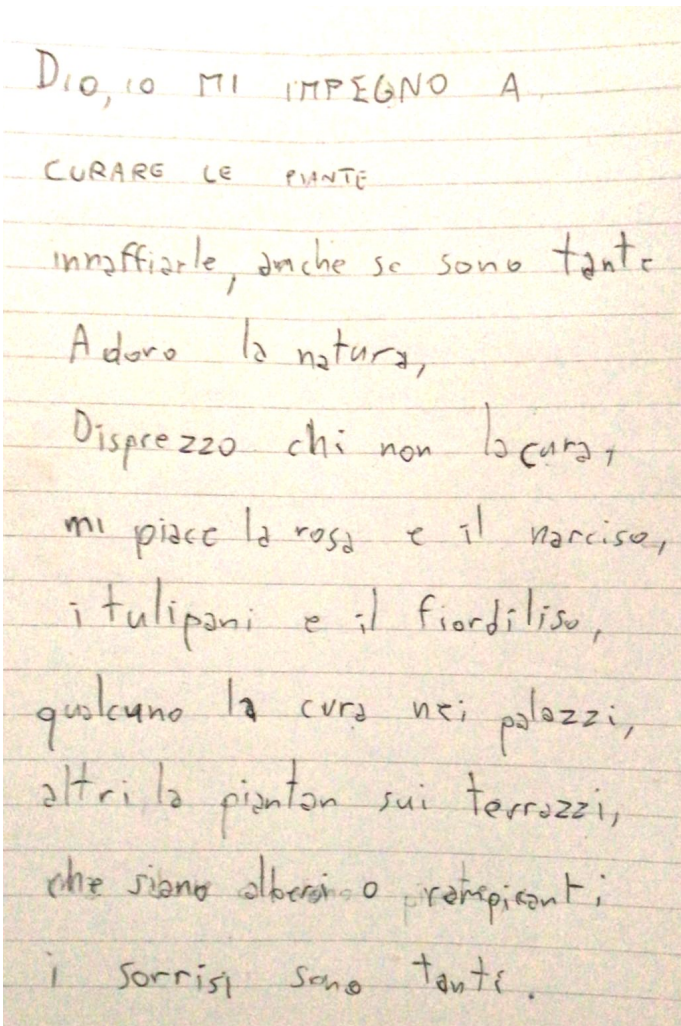 DIO, IO MI IMPEGNO A
CURARE LE PIANTE
innaffiarle, anche se sono tante
Adoro la natura,
Disprezzo chi non la cura,
mi piace la rosa e il narciso,
i tulipani e il fiordiliso,
qualcuno la cura nei palazzi,
altri la piantan sui terrazzi,
che siano alberi o rampicanti
i sorrisi sono tanti.